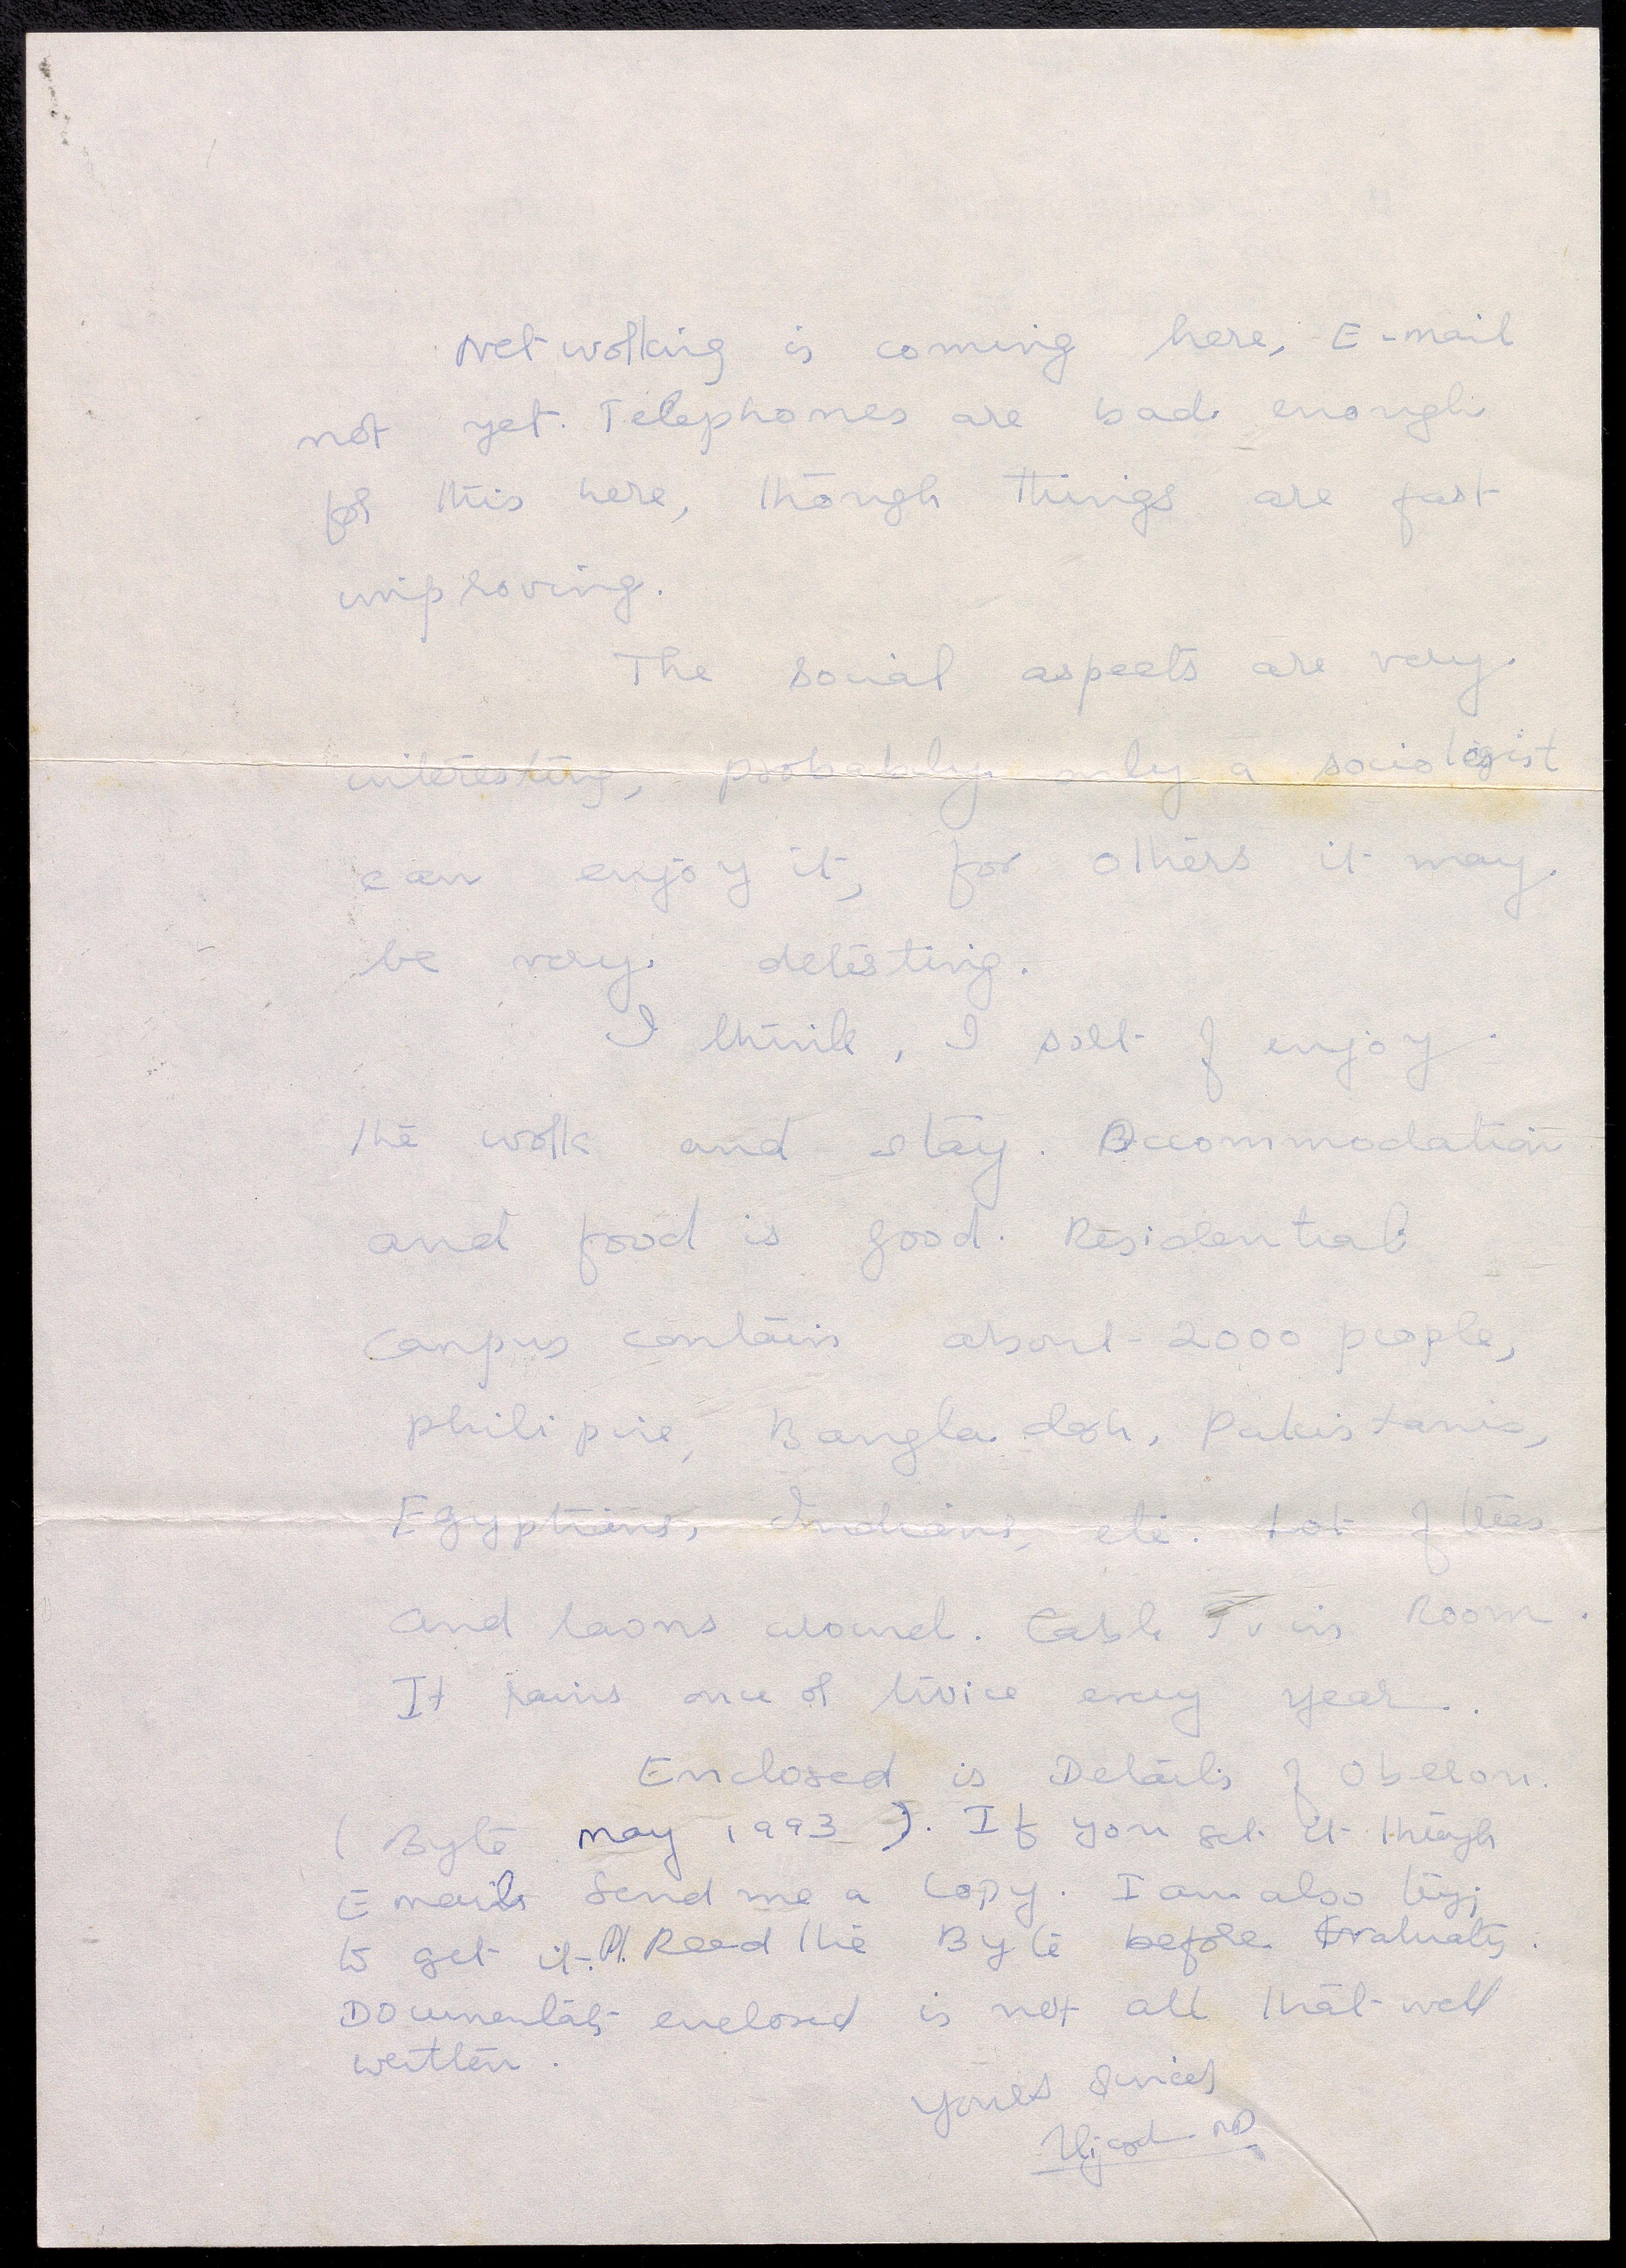 Networking is coming here, E-mail
not yet. Telephones are bad enough
for this here, though things are fast
improving.
The social aspects are very
interesting, probably only a sociologist
can enjoy it, for others it may
be very detesting.
I think, I sort of enjoy
the work and stay. Accommodation
and food is good. Residential
Campus contain about 2000 people,
philipine, Bangla desh, Pakistanis,
Egyptians, Indians, etc. Lot of trees
and laons around. Cable Tv in Room.
It rains once or twice every year.
Enclosed is Details of Oberon.
(Byte may 1993). If you get it through
Email send me a copy. I am also
to get it. Pl. Read the Byte before
enclosed is not all that well
written.
Yours